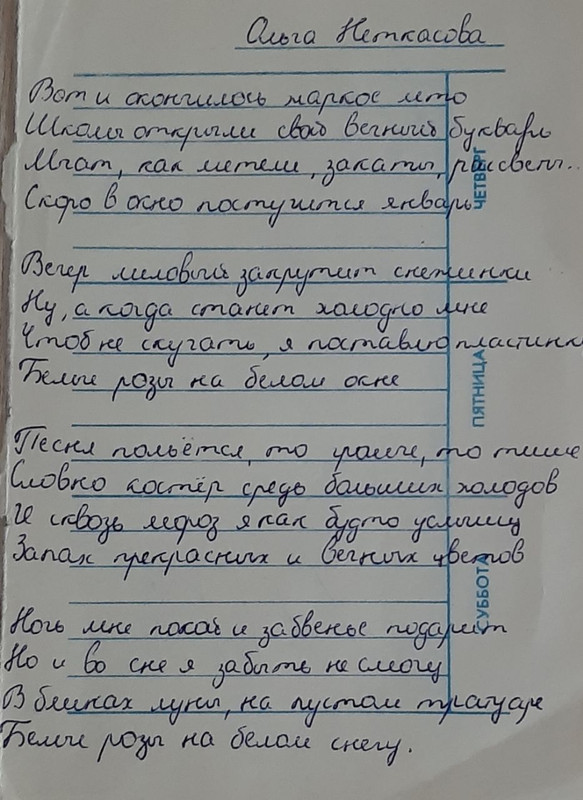 Ольга Неткасова
Вот и окончилось жаркое лето
Школы открыли свой вечный букварь
Мчат, как метели, закаты, рассветы..
ЧЕТВЕРГ
Скоро в окно постучится январь
Вечер лиловый закрутит снежинки
Ну, а когда станет холодно мне
Чтоб не скучать, я поставлю пластинк
Белые розы на белом окне
ПЯТНИЦА
Песня польётся, то громче, то тише
Словно костёр средь больших холодов
И сквозь мороз я как будто услышу
Запах прекрасных и вечных цветов
СУББОТА
Ночь мне покой и забвенье подарит
Но и во сне я забыть не смогу
В бликах луны, на пустом тротуаре
Белые розы на белом снегу.